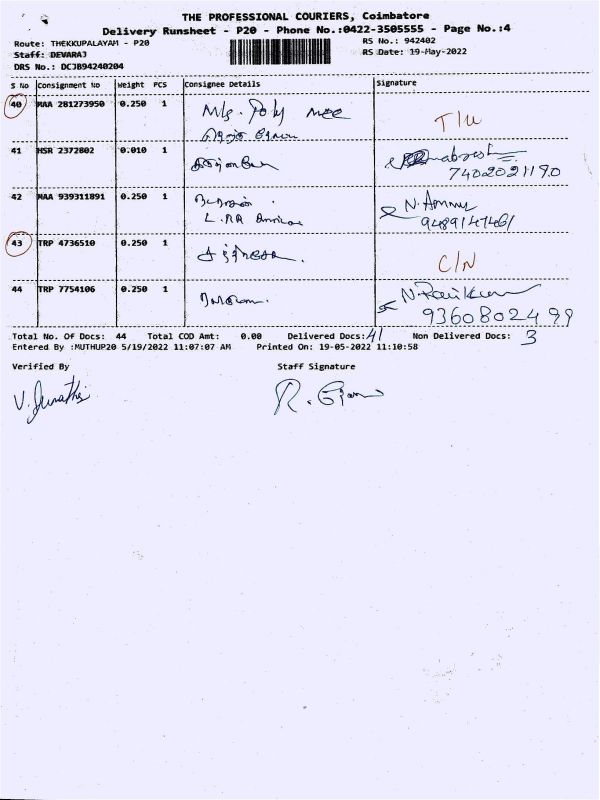 THE PROFESSIONAL COURIERS, Coimbatore
Delivery Runsheet - P20 - Phone No.:0422-3505555 - Page No.:4
Route: THEKKUPALAYAM - P20 RS No.: 942402
Staff: DEVARAJ RS Date: 19-May-2022
DRS No.: DCJB94240204
S No Consignment No Weight PCS Consignee Details Signature
40 MAA 281273950 0.250 1 M/s. Poly T/U
41 HSR 2372802 0.010 1
7402021190
42 MAA 939311891 0.250 1
9489147461
43 TRP 4736510 0.250 1 C/N
44 TRP 7754106 0.250 1 N.
9360802499
Total No. Of Docs: 44 Total COD Amt: 0.00 Delivered Docs: 41 Non Delivered Docs: 3
Entered By :MUTHUP20 5/19/2022 11:07:07 AM Printed On: 19-05-2022 11:10:58
Verified By Staff Signature